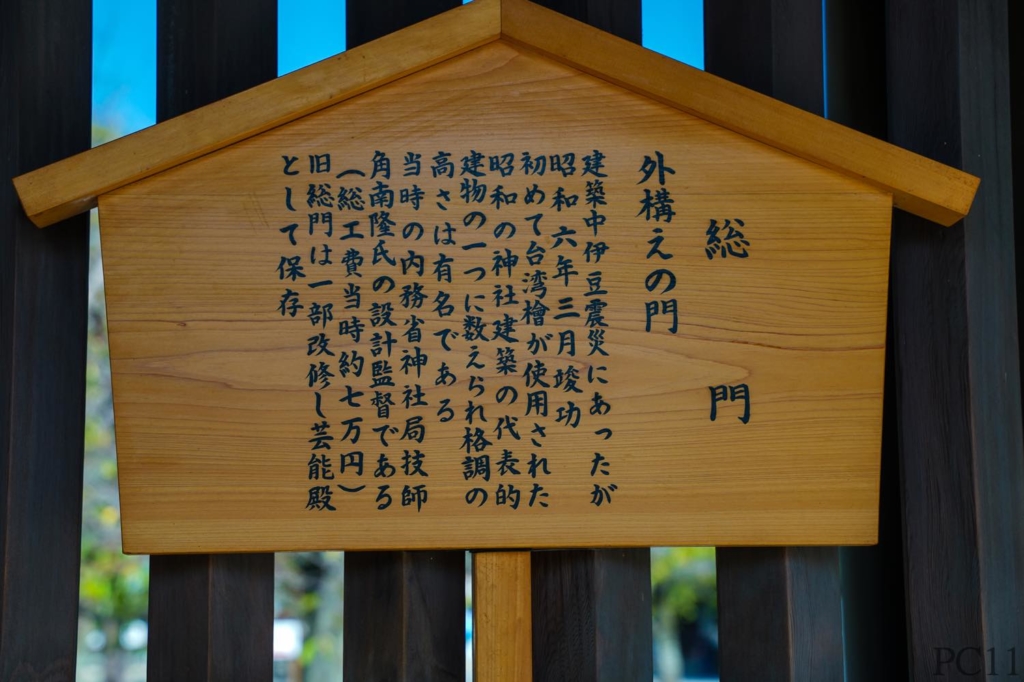 総門
外構えの門
建築中伊豆震災にあったが
昭和六年三月竣功
初めて台湾檜が使用された
昭和の神社建築の代表的
建物の一つに数えられ格調の
高さは有名である
当時の内務省神社局技師
角南隆氏の設計監督である
(総工費当時約七万円)
旧総門は一部改修し芸能殿
として保存
PC11